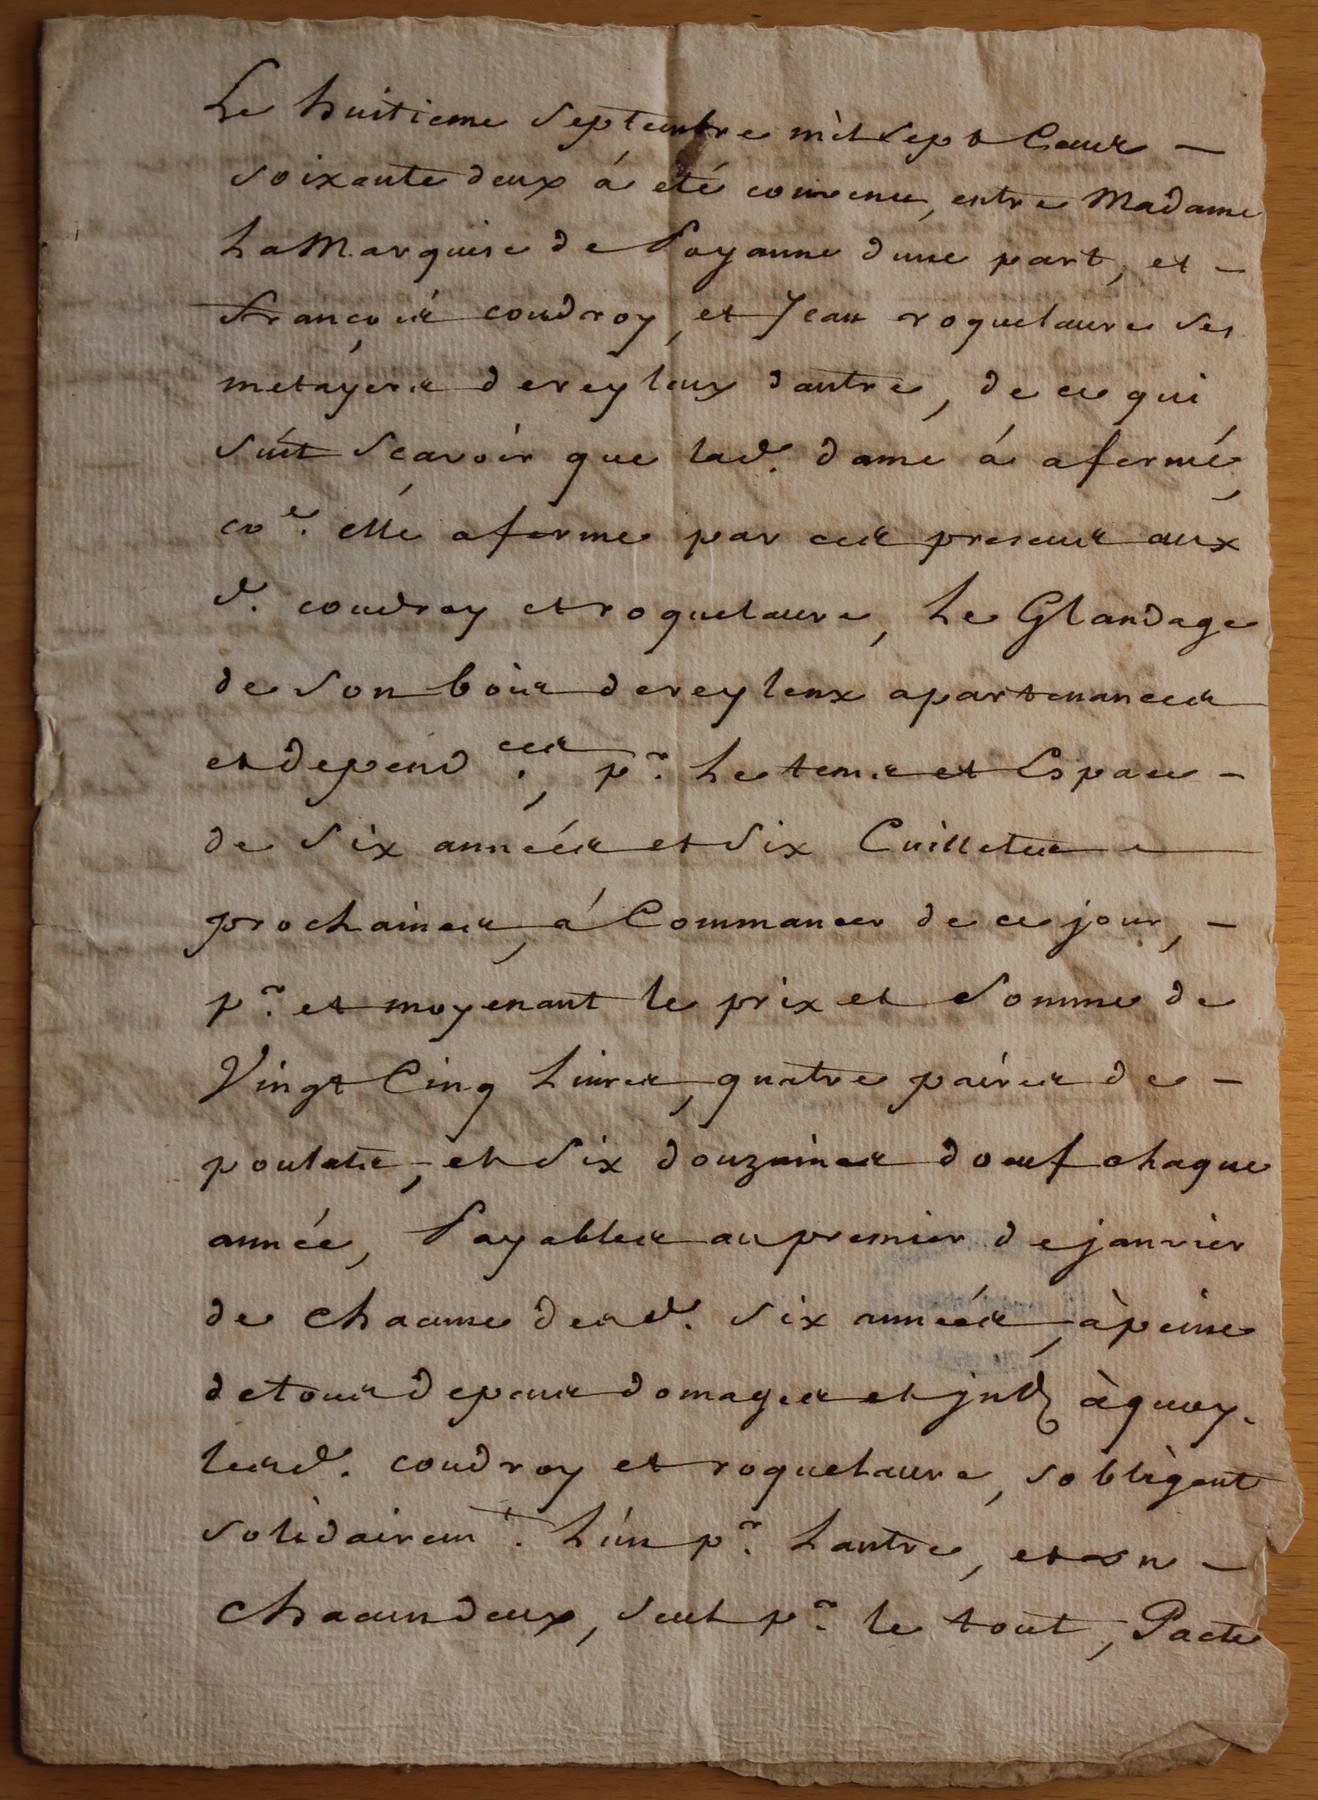 Le huitieme Septembre mil Sept Cens –
soixante deux á eté convenu, entre Madame
La Marquise de Poyanne dune part, et –
François coudroy, et Jean roquelaure ses
metayers de reyleux dautre, de ce qui
suit Scavoir que lad. dame á afermé,
coe. elle aferme par ces presens aux
d. coudroy et roquelaure, Le Glandage
de Son bois de reyleux apartenances
et depend.ces, pr. Le tems et Espace –
de Six années et Six Cuilletes
prochaines, á Commancer de ce jour, –
pr. et moyenant le prix et Somme de
Vingt Cinq Livres, quatre paires de –
poulets, et Six douzaines doeuf chaque
année, Payables au premier de janvier
de chacune desd. Six années, à peine
de tous depens domages et àquoy
lesd. coudroy et roquelaure, sobligent
solidairemt. Lun pr. Lautre, et un –
chacun deux, seul pr. le tout, Pacte